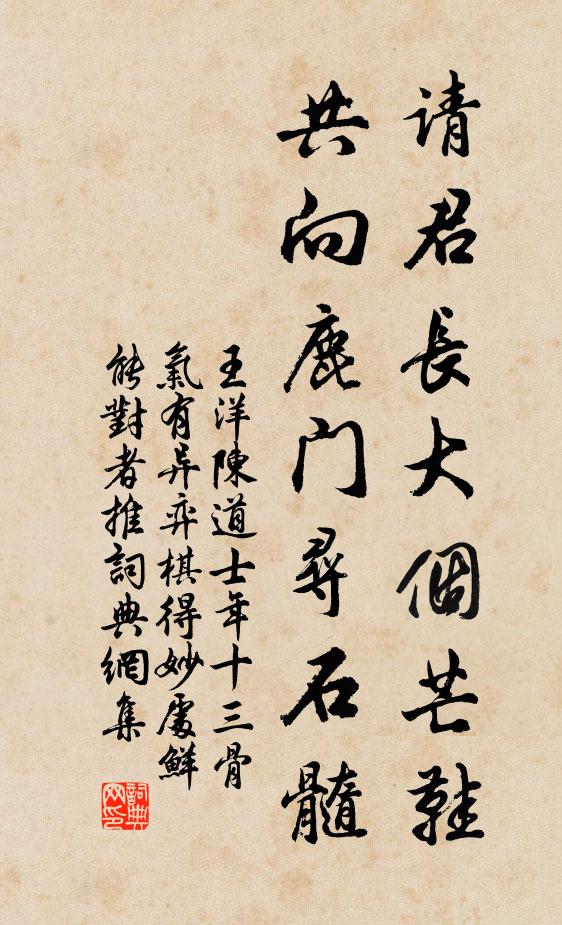 请君長大個芒鞋
共向鹿門尋石髓
王洋陳道士年十三骨
氣有异弈棋得妙處鮮
能對者推詞典網集
詞典
网印